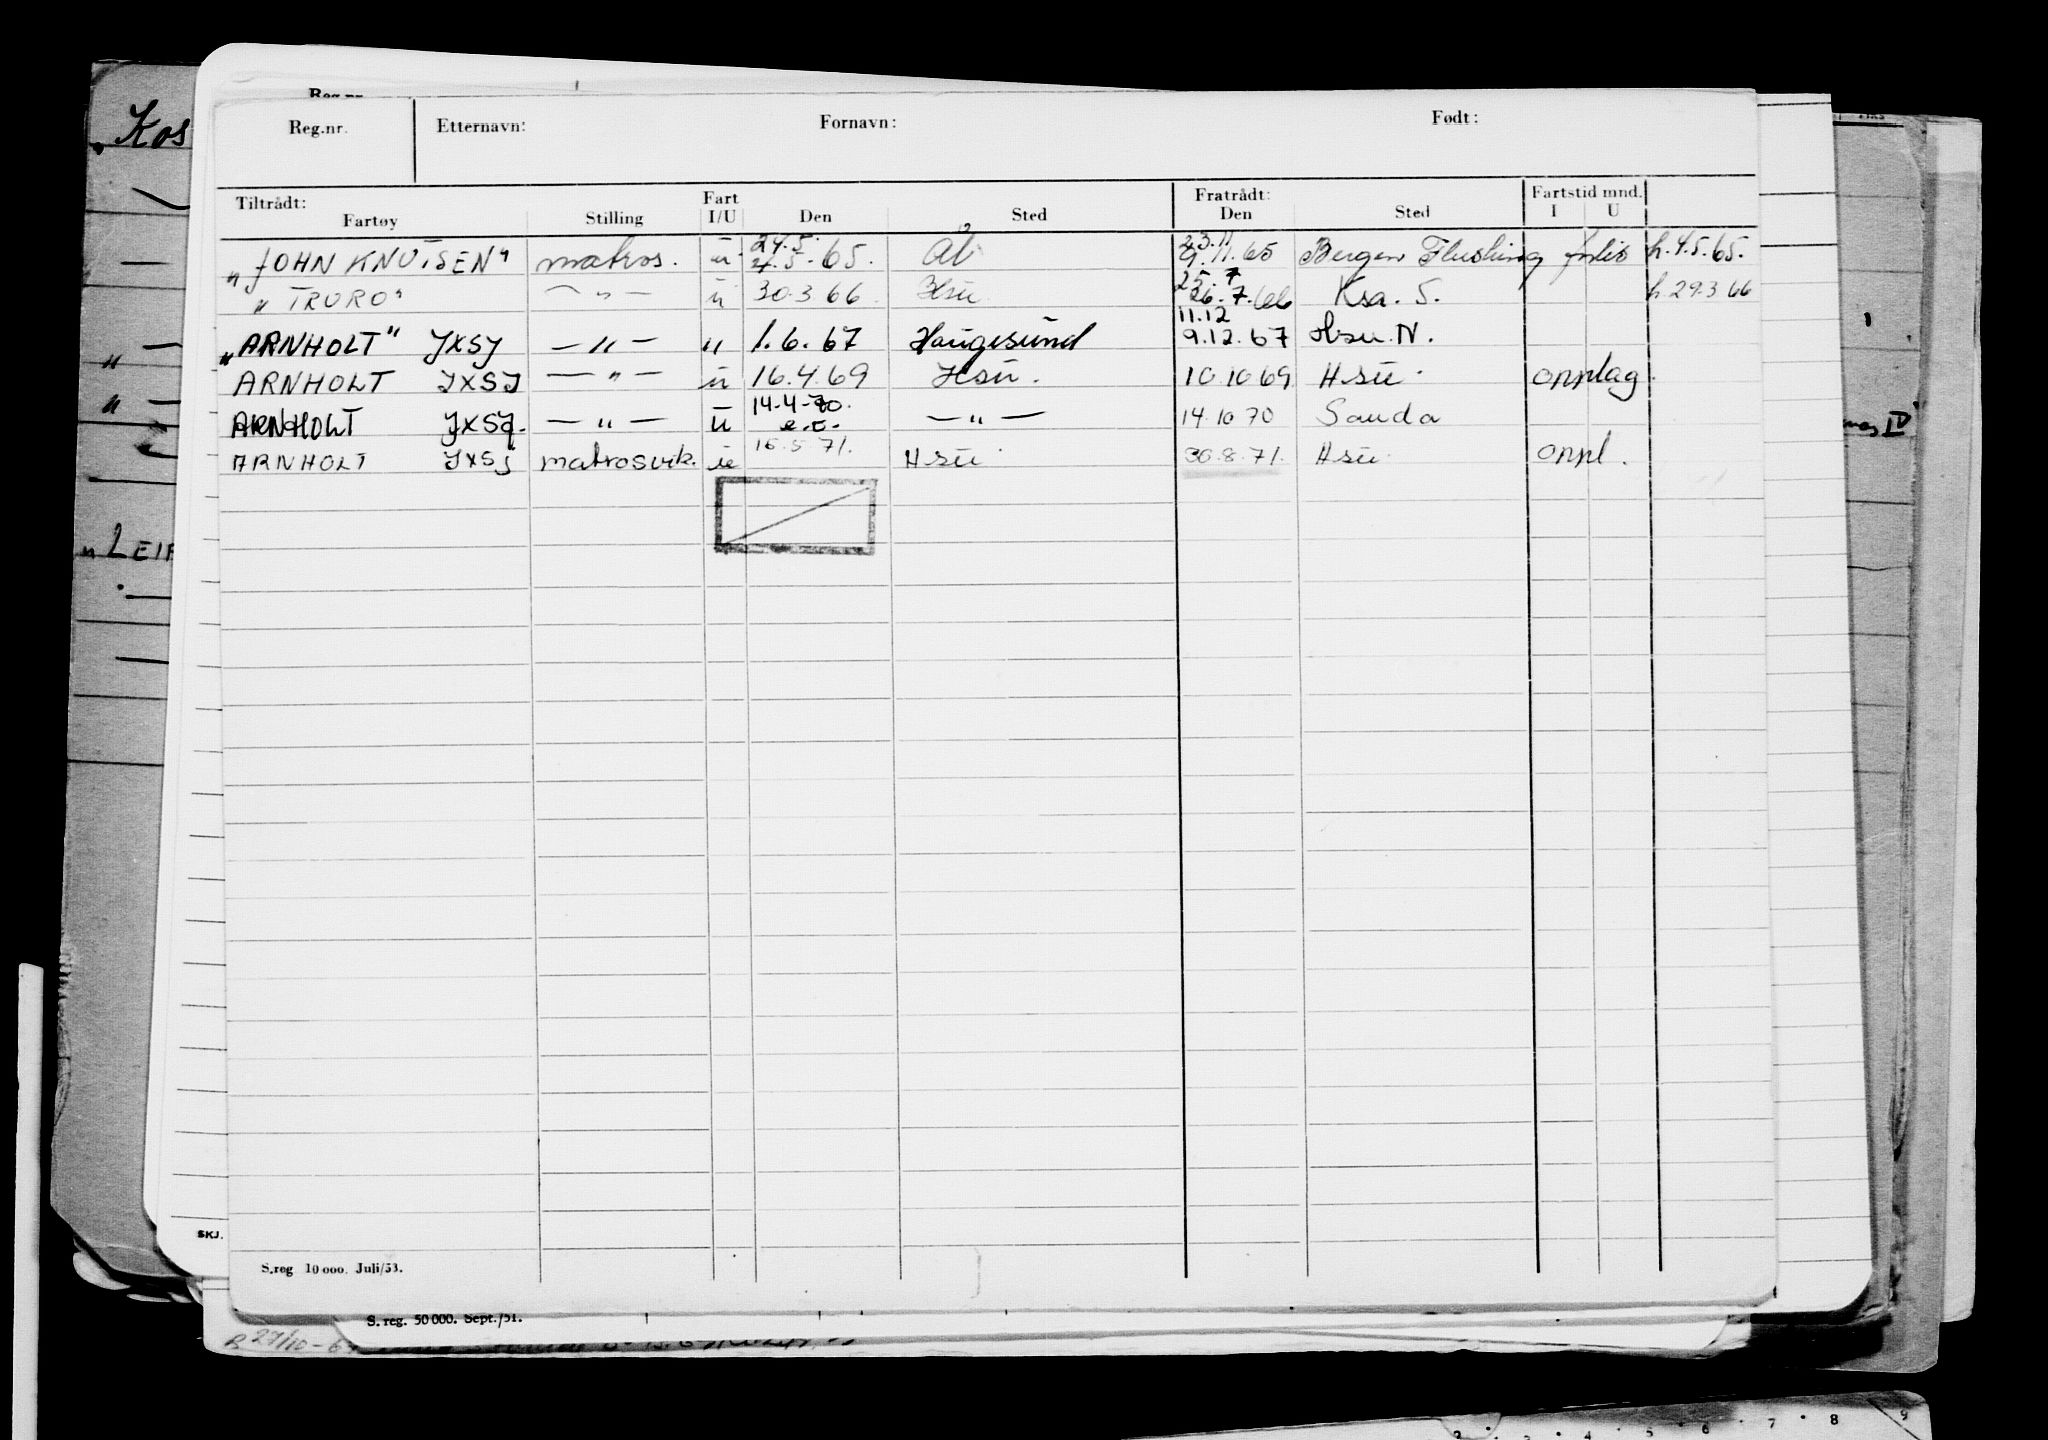 Reg.nr. Etternavn: Fornavn: Født:
Tiltrådt: Fart Fratrådt: Fartstid mnd.
Fartøy Stilling I/U Den Sted Den Sted I U
24.5. 23.11
"JOHN KNUTSEN" matros. u 4.5.65. Ål 9.11.65 Bergen Flushing h. 4.5.65.
25.7
"TRURO" — " — u 30.3 66 Hsu 26.7.66 Ksa. S. h. 29.3 66
11.12
"ARNHOLT" JXSJ — " — u 1.6.67 Haugesund 9.12.67 Hsu. N.
ARNHOLT JXSJ — " — u 16.4.69 Hsu. 10.10 69 Hsu. opplag.
14-4-70.
ARNHOLT JXSJ. — " — u e.t. — " — 14.10 70 Sauda
ARNHOLT JXSJ matrosvik. u 15.5 71. Hsu 30.8.71. Hsu. oppl.
S.reg 10 000. Juli/53.
SKJ.
S. reg. 50 000. Sept./51.
Kos
"LEIF